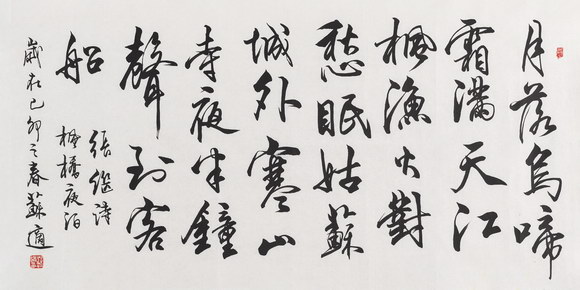 月落烏啼
霜滿天江
楓漁火對
愁眠姑蘇
城外寒山
寺夜半鐘
聲到客
船
張繼詩
楓橋夜泊
歲在己卯之春蘇適